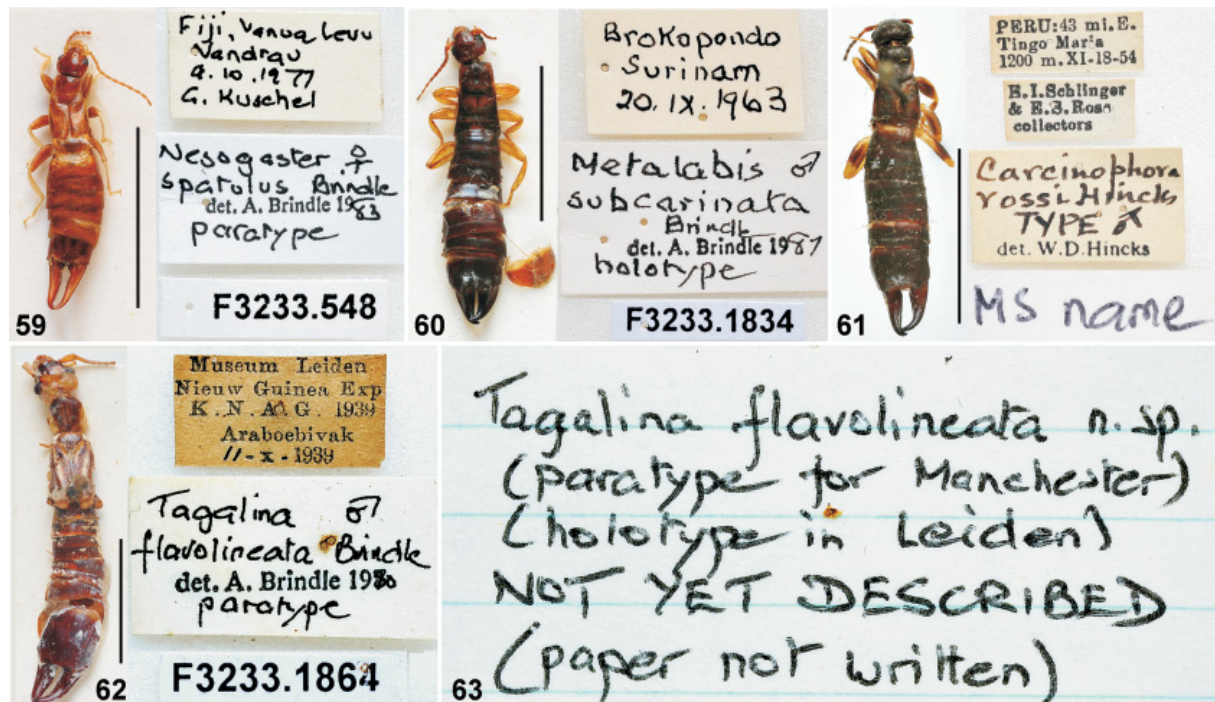 Fiji, Vanua Levu
Vandrau
9.10.1977
G. Kuschel
Nesogaster ♀
spatulus Brindle
det. A. Brindle 1983
paratype
F3233.548
59
Brokopondo
Surinam
20.IX.1963
Metalabis ♂
subcarinata
Brindle
det. A. Brindle 1987
holotype
F3233.1834
60
PERU: 43 mi. E.
Tingo Maria
1200 m. XI-18-54
E.I. Schlinger
& E.S. Ross
collectors
Carcinophora
rossi Hincks
TYPE ♂
det. W.D. Hincks
MS name
61
Museum Leiden
Nieuw Guinea Exp
K. N. A. G. 1939
Araboebivak
11-X-1939
Tagalina ♂
flavolineata Brindle
det. A. Brindle 1980
paratype
F3233.1864
62
Tagalina flavolineata n.sp.
(paratype for Manchester)
(holotype in Leiden)
NOT YET DESCRIBED
(paper not written)
63